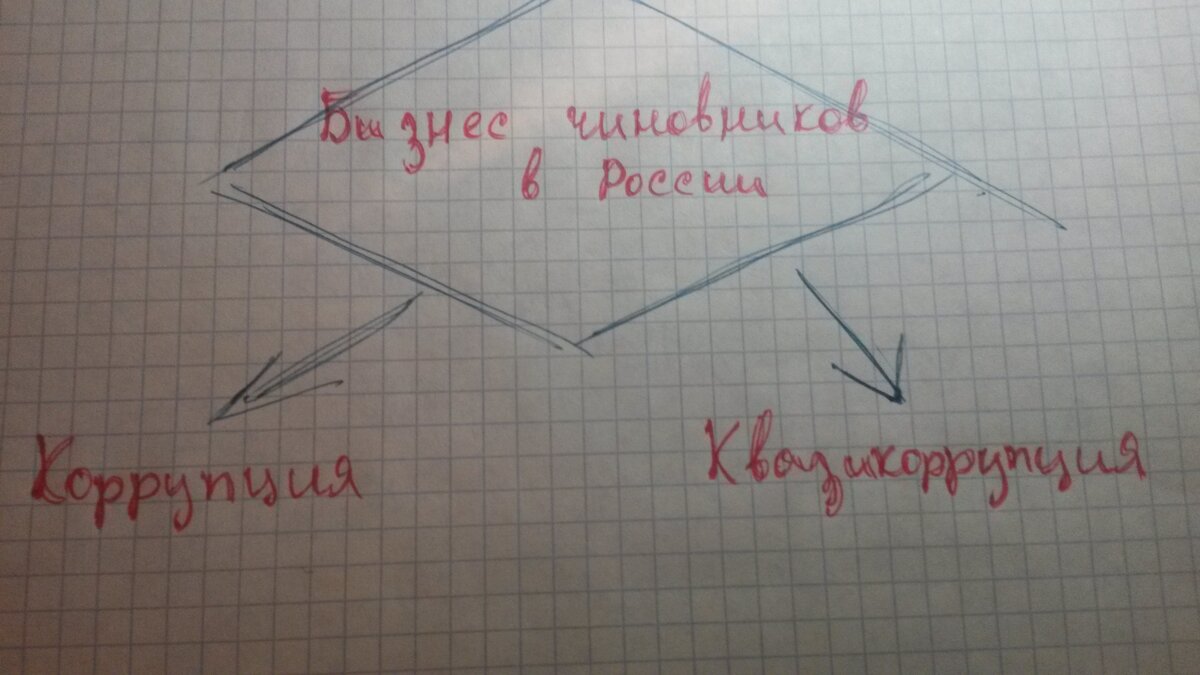 Бизнес чиновников
в России
Коррупция
Квазикоррупция